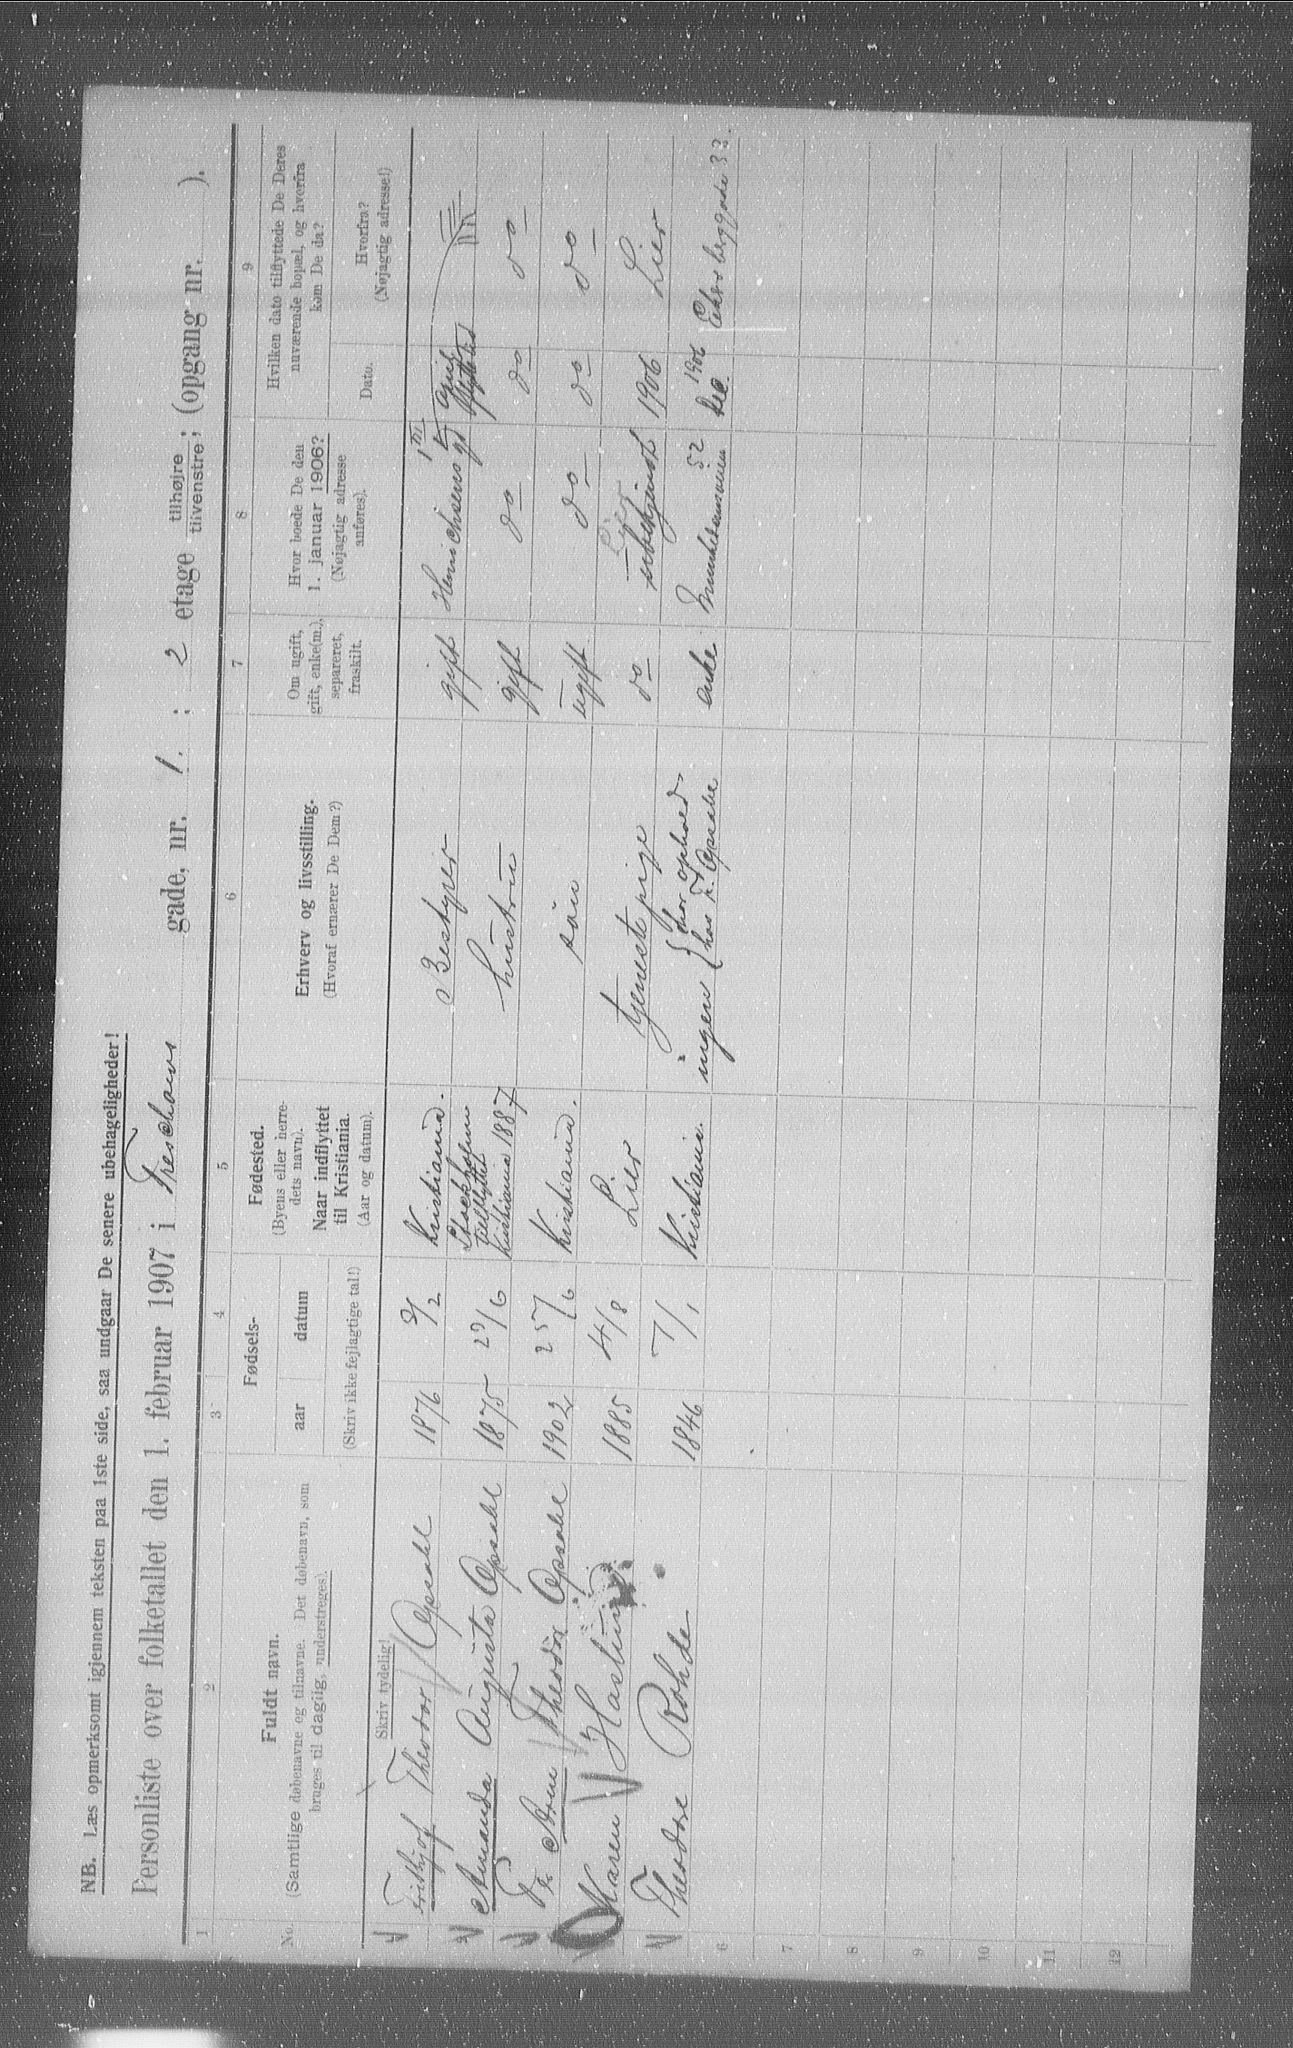 NB. Læs opmerksomt igjennem teksten paa 1ste side, saa undgaar De senere ubehageligheder!
Personliste over folketallet den 1. februar 1907 i Treschows gade, nr. 1. ; 2 etage tilhøjre tilvenstre; (opgang nr. ).
1 2 3 4 5 6 7 8 9
No.
Fuldt navn.
(Samtlige døbenavne og tilnavne. Det døbenavn, som
bruges til daglig, understreges).
Skriv tydelig!
Fødsels-
aar datum
(Skriv ikke fejlagtige tal!)
Fødested.
(Byens eller herre-
dets navn).
Naar indflyttet
til Kristiania.
(Aar og datum).
Erhverv og livsstilling.
(Hvoraf ernærer De Dem?)
Om ugift,
gift, enke(m.),
separeret,
fraskilt.
Hvor boede De den
1. januar 1906?
(Nøjagtig adresse
anføres).
Hvilken dato tilflyttede De Deres
nuværende bopæl, og hvorfra
kom De da?
Dato.
Hvorfra?
(Nøjagtig adresse!)
Frithjof Theodor Opsahl 1876 9/2 Kristiania. Bestyrer gift april
Amanda Augusta Opsahl 1875 29/6 Stockholm
Tilflyttet
Kristiania 1887 hustru gift do do do
Theodor Opsahl 1902 25/6 Kristiania. søn ugift do do do
Karen Haslund 1885 4/8 Lier tjenestepige do Lier ubekjendt 1906 Lier
Theodore Rohde 1846 7/1 Kristiania. ingen { har ophold
{ hos F. Opsahl enke. 52 Dec. 1906
6
7
8
9
10
11
12